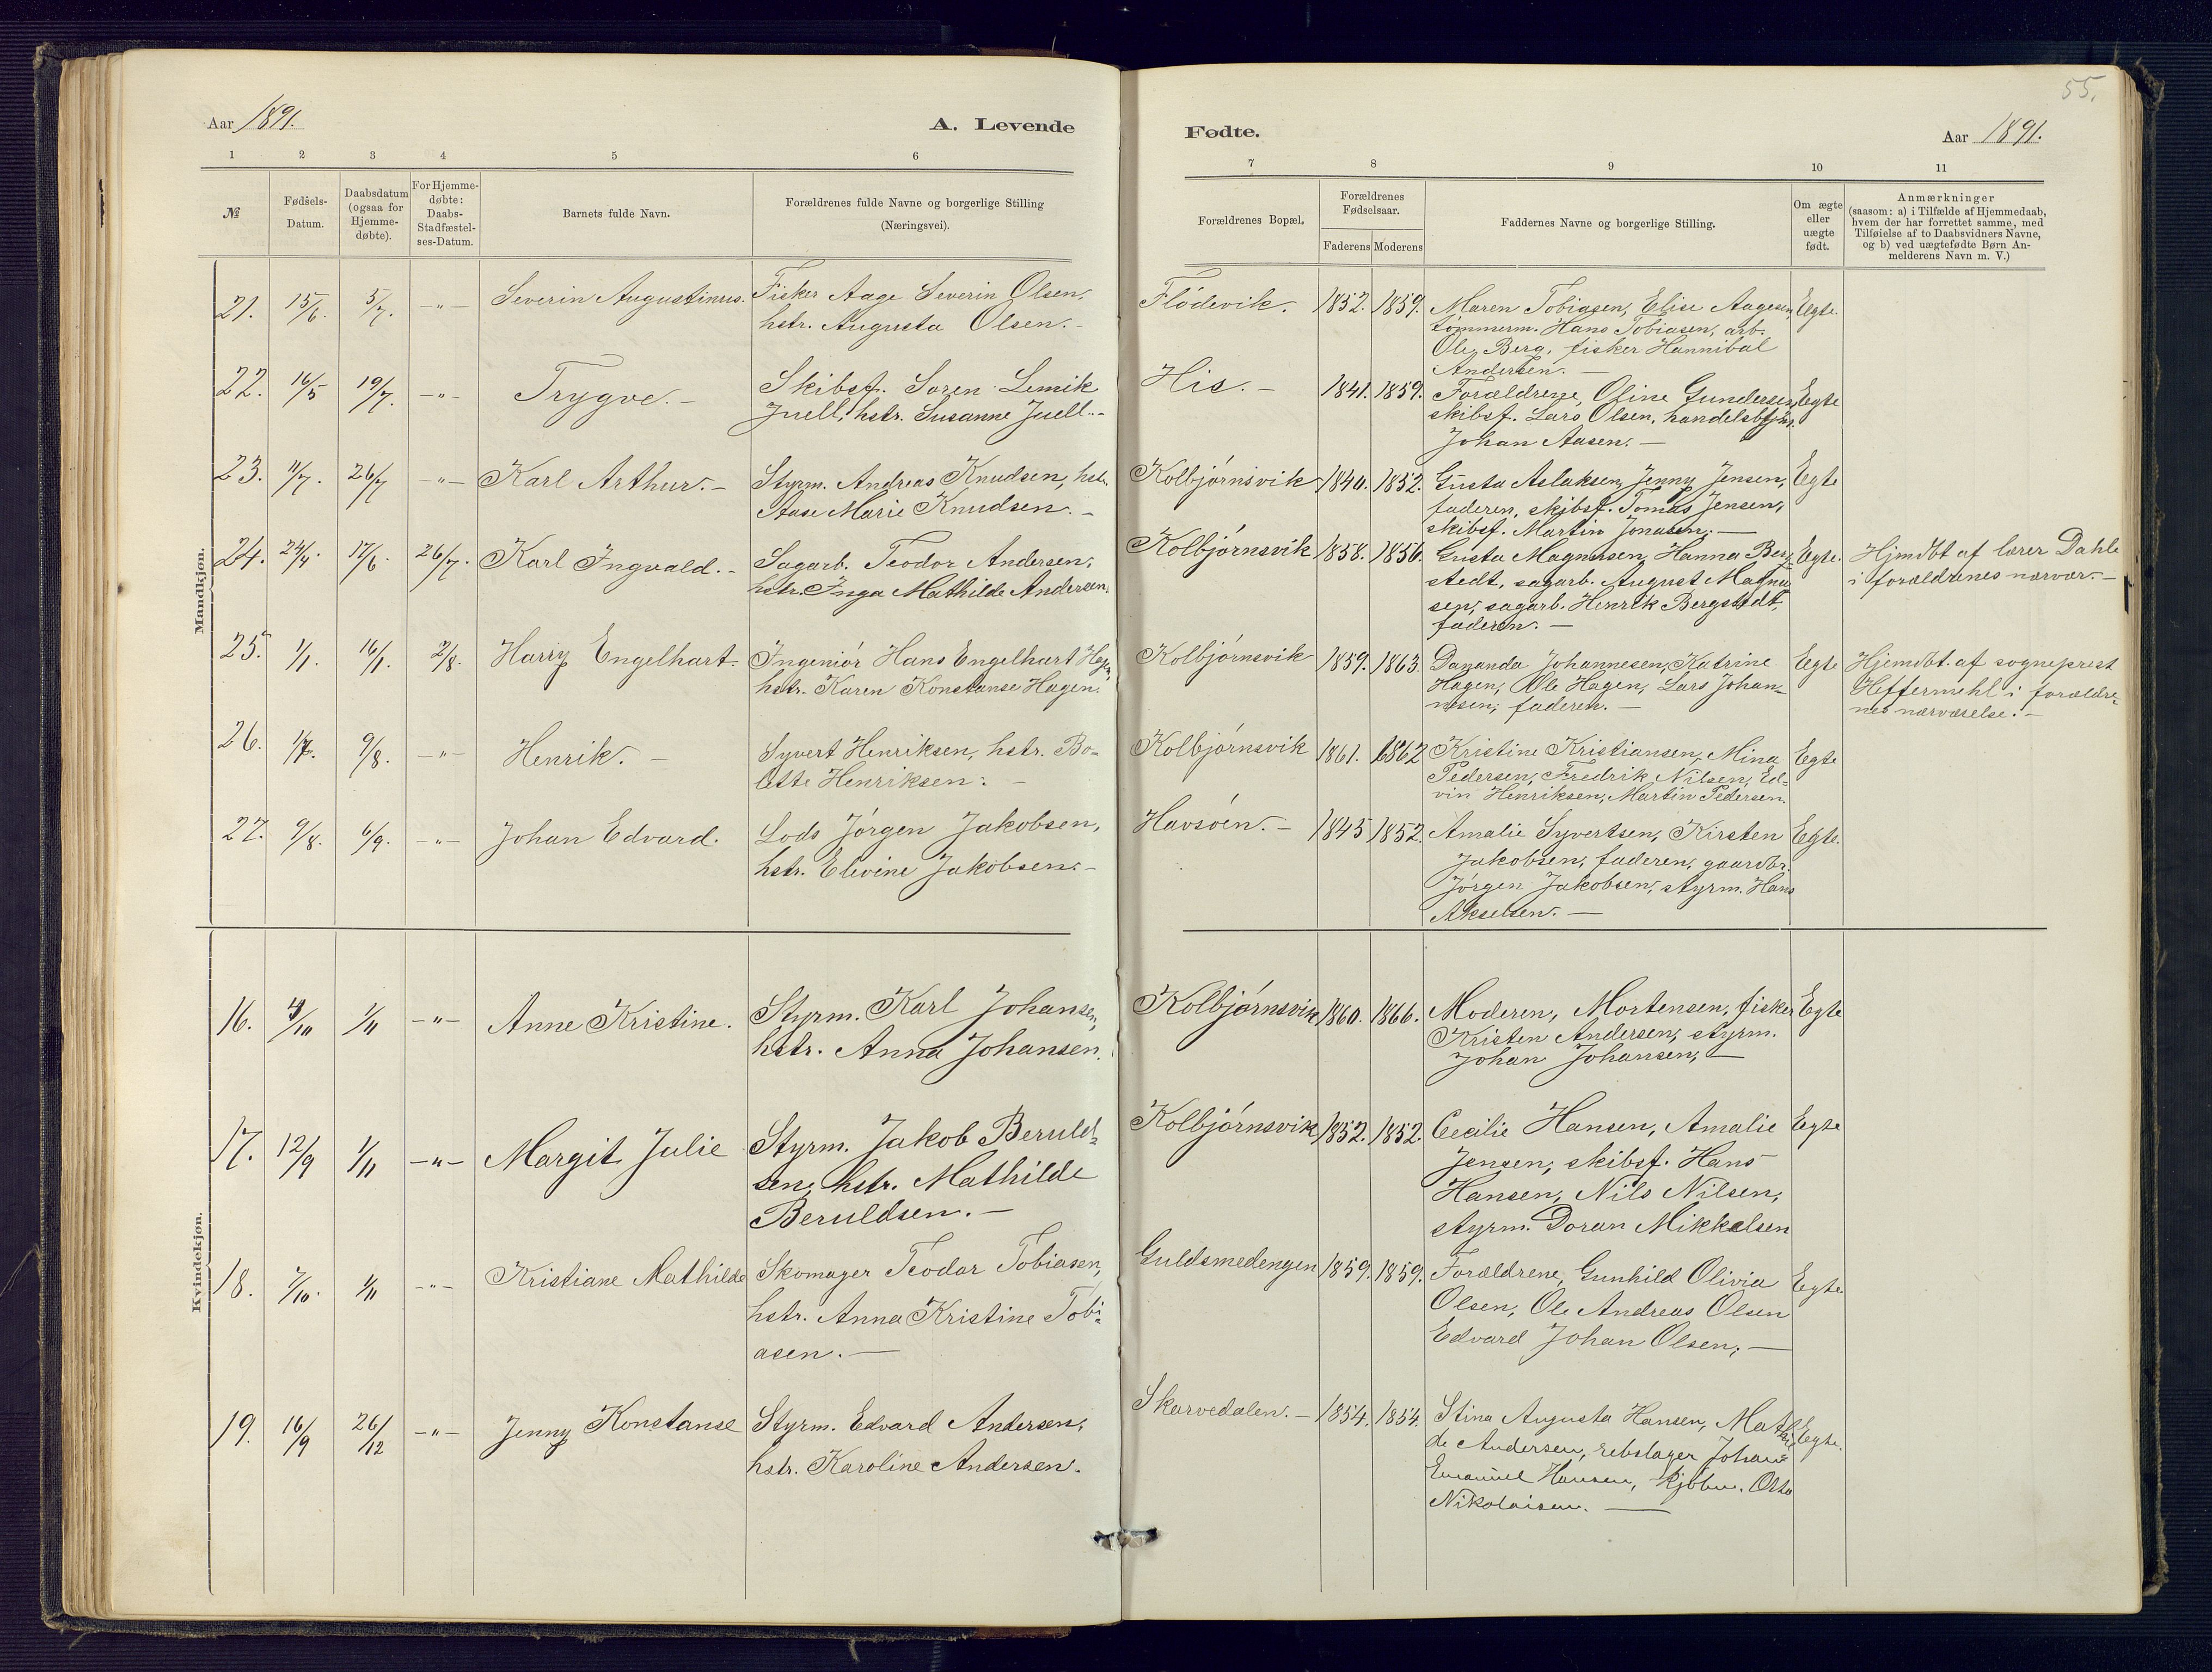 55.
Aar 1891.
A. Levende
Fødte.
Aar 1891.
1 2 3 4 5 6
7 8 9 10 11
№
Fødsels-
Datum.
Daabsdatum
(ogsaa for
Hjemme-
døbte).
For Hjemme-
døbte:
Daabs-
Stadfæstel-
ses-Datum.
Barnets fulde Navn.
Forældrenes fulde Navne og borgerlige Stilling
(Næringsvei).
Forældrenes Bopæl.
Forældrenes
Fødselsaar.
Faderens Moderens
Faddernes Navne og borgerlige Stilling.
Om ægte
eller
uægte
født.
Anmærkninger
(saasom: a) i Tilfælde af Hjemmedaab,
hvem der har forrettet samme, med
Tilføielse af to Daabsvidners Navne,
og b) ved uægtefødte Børn An-
melderens Navn m. V.)
Mandkjøn.
21. 15/6. 5/7. -"- Severin Augustinus. Fisker Aage Severin Olsen,
hstr. Augusta Olsen.-
Flödevik. 1852. 1859. Maren Tobiasen, Elise Aagesen, Egte.
tömmerm. Hans Tobiasen, arb.
Ole Berg, fisker Hannibal
Andersen.-
22. 16/5 19/7. -"- Trygve.- Skibsf. Soren Lemik
Juell, hstr. Susanne Juell.-
His.- 1841. 1859. Forældrene, Oline Gundersen, Egte
skibsf. Lars Olsen, handelsbtjn.
Johan Aasen.-
23. 11/7. 26/7 -"- Karl Arthur.- Styrm. Andreas Knudsen, hstr.
Aase Marie Knudsen.-
Kolbjörnsvik 1840. 1852. Gusta Aslaksen, Jenny Jensen, Egte
faderen, skibsf. Tomas Jensen,
skibsf. Martin Jonasen.-
24. 24/4. 17/6. 26/7. Karl Ingvald.- Sagarb. Teodor Andersen,
hstr. Inga Mathilde Andersen.
Kolbjörnsvik 1858. 1856. Gusta Magnusen, Hanna Berg- Egte. Hjmdbt af lærer Dahle
stedt, sagarb. August Magnu i forældrenes nærvær.-
sen, sagarb. Henrik Bergstedt,
faderen.-
25. 1/1. 16/1. 2/8. Harry Engelhart. Ingeniör Hans Engelhart Hagen,
hstr. Karen Konstanse Hagen.
Kolbjörnsvik 1859. 1863. Dananda Johannesen, Katrine Egte Hjemdbt. af sogneprest
Hagen, Ole Hagen, Lars Johan- Heftermehl i forældre-
nesen, faderen.- nes nærværelse.-
26. 1/7. 9/8. -"- Henrik.- Syvert Henriksen, hstr. Bo-
lette Henriksen.-
Kolbjörnsvik 1861. 1862 Kristine Kristiansen, Mina Egte
Pedersen, Fredrik Nilsen, Ed-
vin Henriksen, Martin Pedersen.
27. 9/8. 6/9. -"- Johan Edvard. Lods Jörgen Jakobsen,
hstr. Elevine Jakobsen.-
Havsöen.- 1845 1852. Amalie Syvertsen, Kirsten Egte.
Jakobsen, faderen, gaardbr.
Jörgen Jakobsen, styrm. Hans
Akselsen.-
Kvindekjøn.
16. 4/10 1/11 -"- Anne Kristine. Styrm. Karl Johansen,
hstr. Anna Johansen.
Kolbjörnsvik 1860. 1866. Moderen, Mortensen, fisker Egte
Kristen Andersen, styrm.
Johan Johansen,-
17. 12/9 1/11 -"- Margit Julie Styrm. Jakob Beruld-
sen, hstr. Mathilde
Beruldsen.-
Kolbjörnsvik 1852. 1852. Cecilie Hansen, Amalie Egte
Jensen, skibsf. Hans
Hansen, Nils Nilsen,
styrm. Doran Mikkelsen
18. 7/10. 1/11 -"- Kristiane Mathilde Skomager Teodor Tobiasen,
hstr. Anna Kristine Tobi-
asen.-
Guldsmedengen 1859. 1859. Forældrene, Gunhild Olivia Egte.
Olsen, Ole Andreas Olsen
Edvard Johan Olsen,-
19. 16/9 26/12 -"- Jenny Konstanse Styrm. Edvard Andersen,
hstr. Karoline Andersen.
Skarvedalen.- 1854. 1854. Stina Augusta Hansen, Mathil Egte.
de Andersen, rebslager Johan
Emanuel Hansen, kjöbm. Otto
Nikolaisen.-